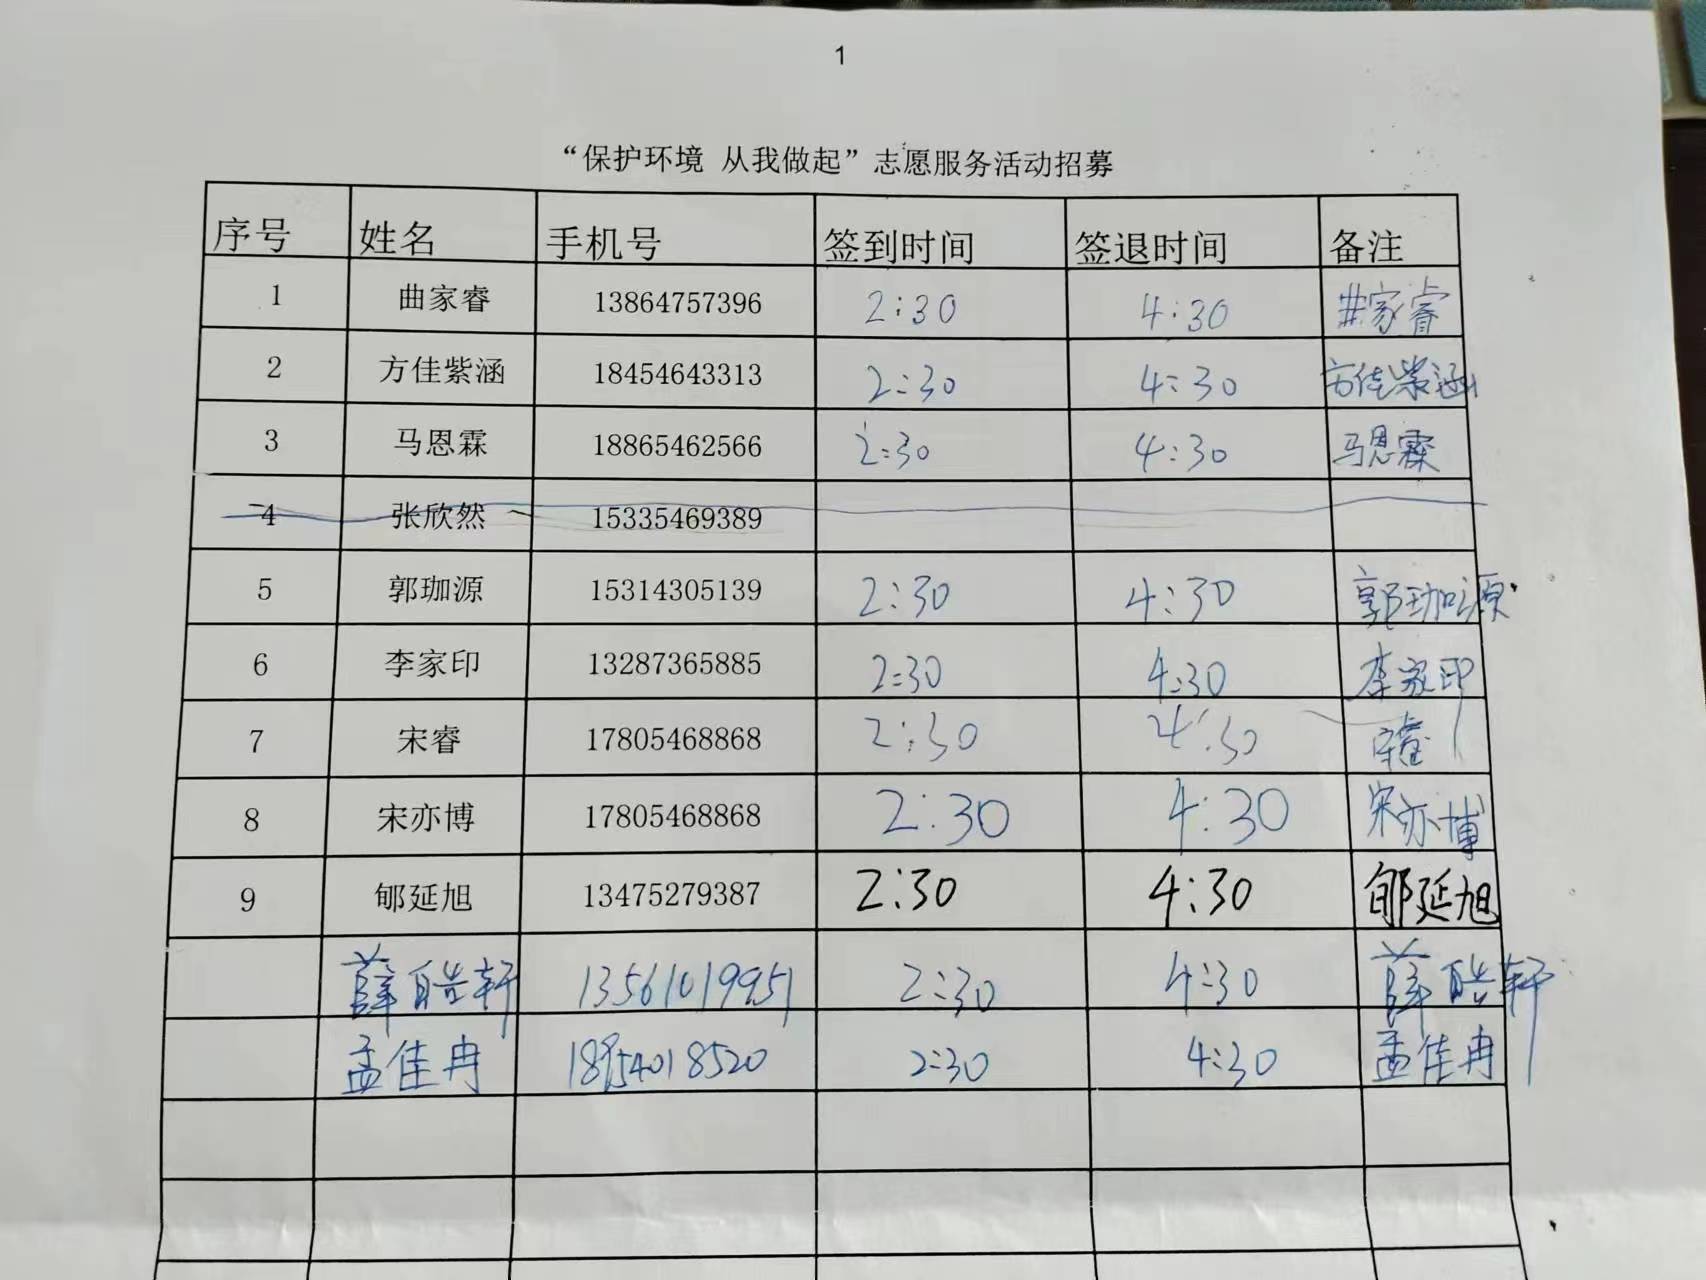 1
“保护环境 从我做起”志愿服务活动招募
序号 姓名 手机号 签到时间 签退时间 备注
1 曲家睿 13864757396 2:30 4:30 曲家睿
2 方佳紫涵 18454643313 2:30 4:30 方佳紫涵
3 马恩霖 18865462566 2:30 4:30 马恩霖
4 张欣然 15335469389
5 郭珈源 15314305139 2:30 4:30 郭珈源
6 李家印 13287365885 2:30 4:30 李家印
7 宋睿 17805468868 2:30 4:30 宋睿
8 宋亦博 17805468868 2:30 4:30 宋亦博
9 郇延旭 13475279387 2:30 4:30 郇延旭
薛皓轩 13561019951 2:30 4:30 薛皓轩
孟佳冉 2:30 4:30 孟佳冉